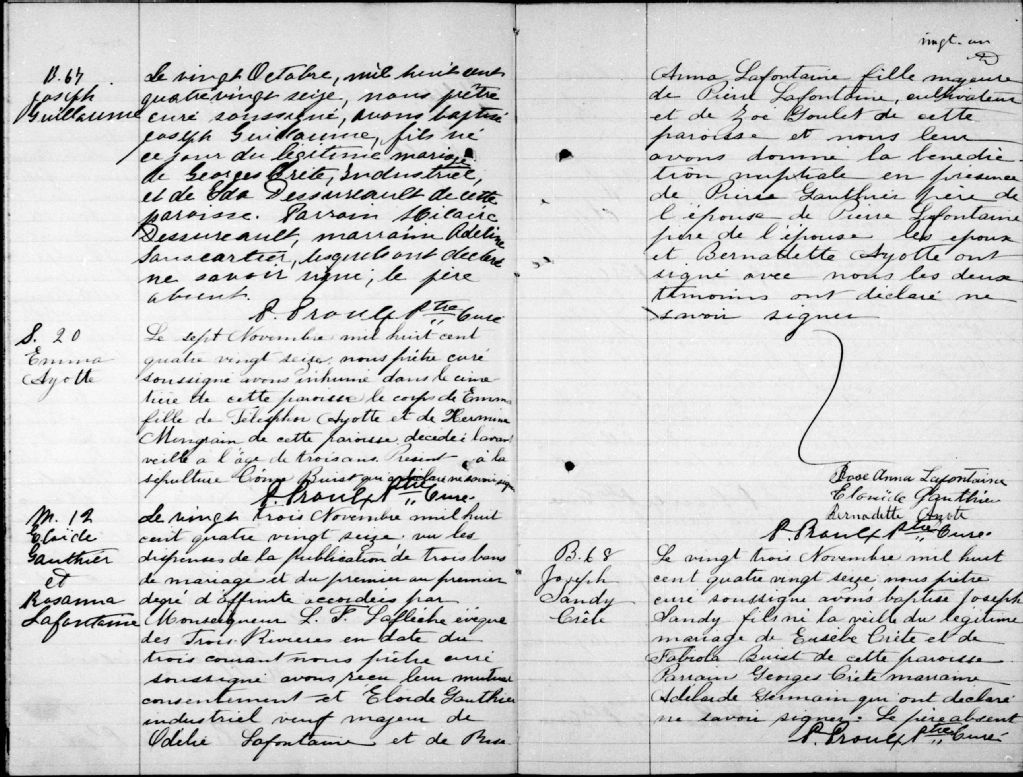 B. 67
Joseph
Guillaume
Le vingt Octobre, mil huit cent
quatre vingt seize, nous prêtre
curé soussigné, avons baptisé
Joseph Guillaume, fils né
ce jour du légitime mariage
de Georges Crête, industriel,
et de Eda Dessureault de cette
paroisse. Parrain Hilaire
Dessureault, marraine Adeline
Sanscartier, lesquels ont déclaré
ne savoir signer, le père
absent.
P. Proulx Ptre Curé
S. 20
Emma
Ayotte
Le sept Novembre mil huit cent
quatre vingt seize, nous prêtre curé
soussigné avons inhumé dans le cime
tière de cette paroisse le corps de Emma
fille de Télesphor Ayotte et de Hermine
Mongrain de cette paroisse, décédée l'avant
veille a l'âge de trois ans. Présent à la
sépulture Côme Buist qui a déclaré ne savoir signer
P. Proulx Ptre Curé
M. 12
Eloide
Gauthier
et
Rosanna
Lafontaine
Le vingt trois Novembre mil huit
cent quatre vingt seize vu les
dispenses de la publication de trois bans
de mariage et du premier au premier
degré d'affinité accordées par
Monseigneur L. F. Laflèche évêque
des Trois Rivières en date du
trois courant nous prêtre curé
soussigné avons reçu leur mutuel
consentement et Eloide Gauthier
industriel veuf majeur de
Odélie Lafontaine et de Rose
vingt-un
Anna Lafontaine fille majeure
de Pierre Lafontaine, cultivateur
et de Zoé Goulet de cette
paroisse et nous leur
avons donné la bénédic
tion nuptiale en présence
de Pierre Gauthier frère de
l'épouse de Pierre Lafontaine
père de l'épouse les époux
et Bernadette Ayotte ont
signé avec nous les deux
témoins ont déclaré ne
savoir signer
Rose Anna Lafontaine
Eloïde Gauthier
Bernadette Ayotte
P. Proulx Ptre Curé
B. 68
Joseph
Sandy
Crête
Le vingt trois Novembre mil huit
cent quatre vingt seize nous prêtre
curé soussigné avons baptisé Joseph
Sandy fils né la veille du légitime
mariage de Eusèbe Crête et de
Fabiola Buist de cette paroisse
Parrain Georges Crête marraine
Adélaide Germain qui ont déclaré
ne savoir signer. Le père absent
P. Proulx Ptre Curé